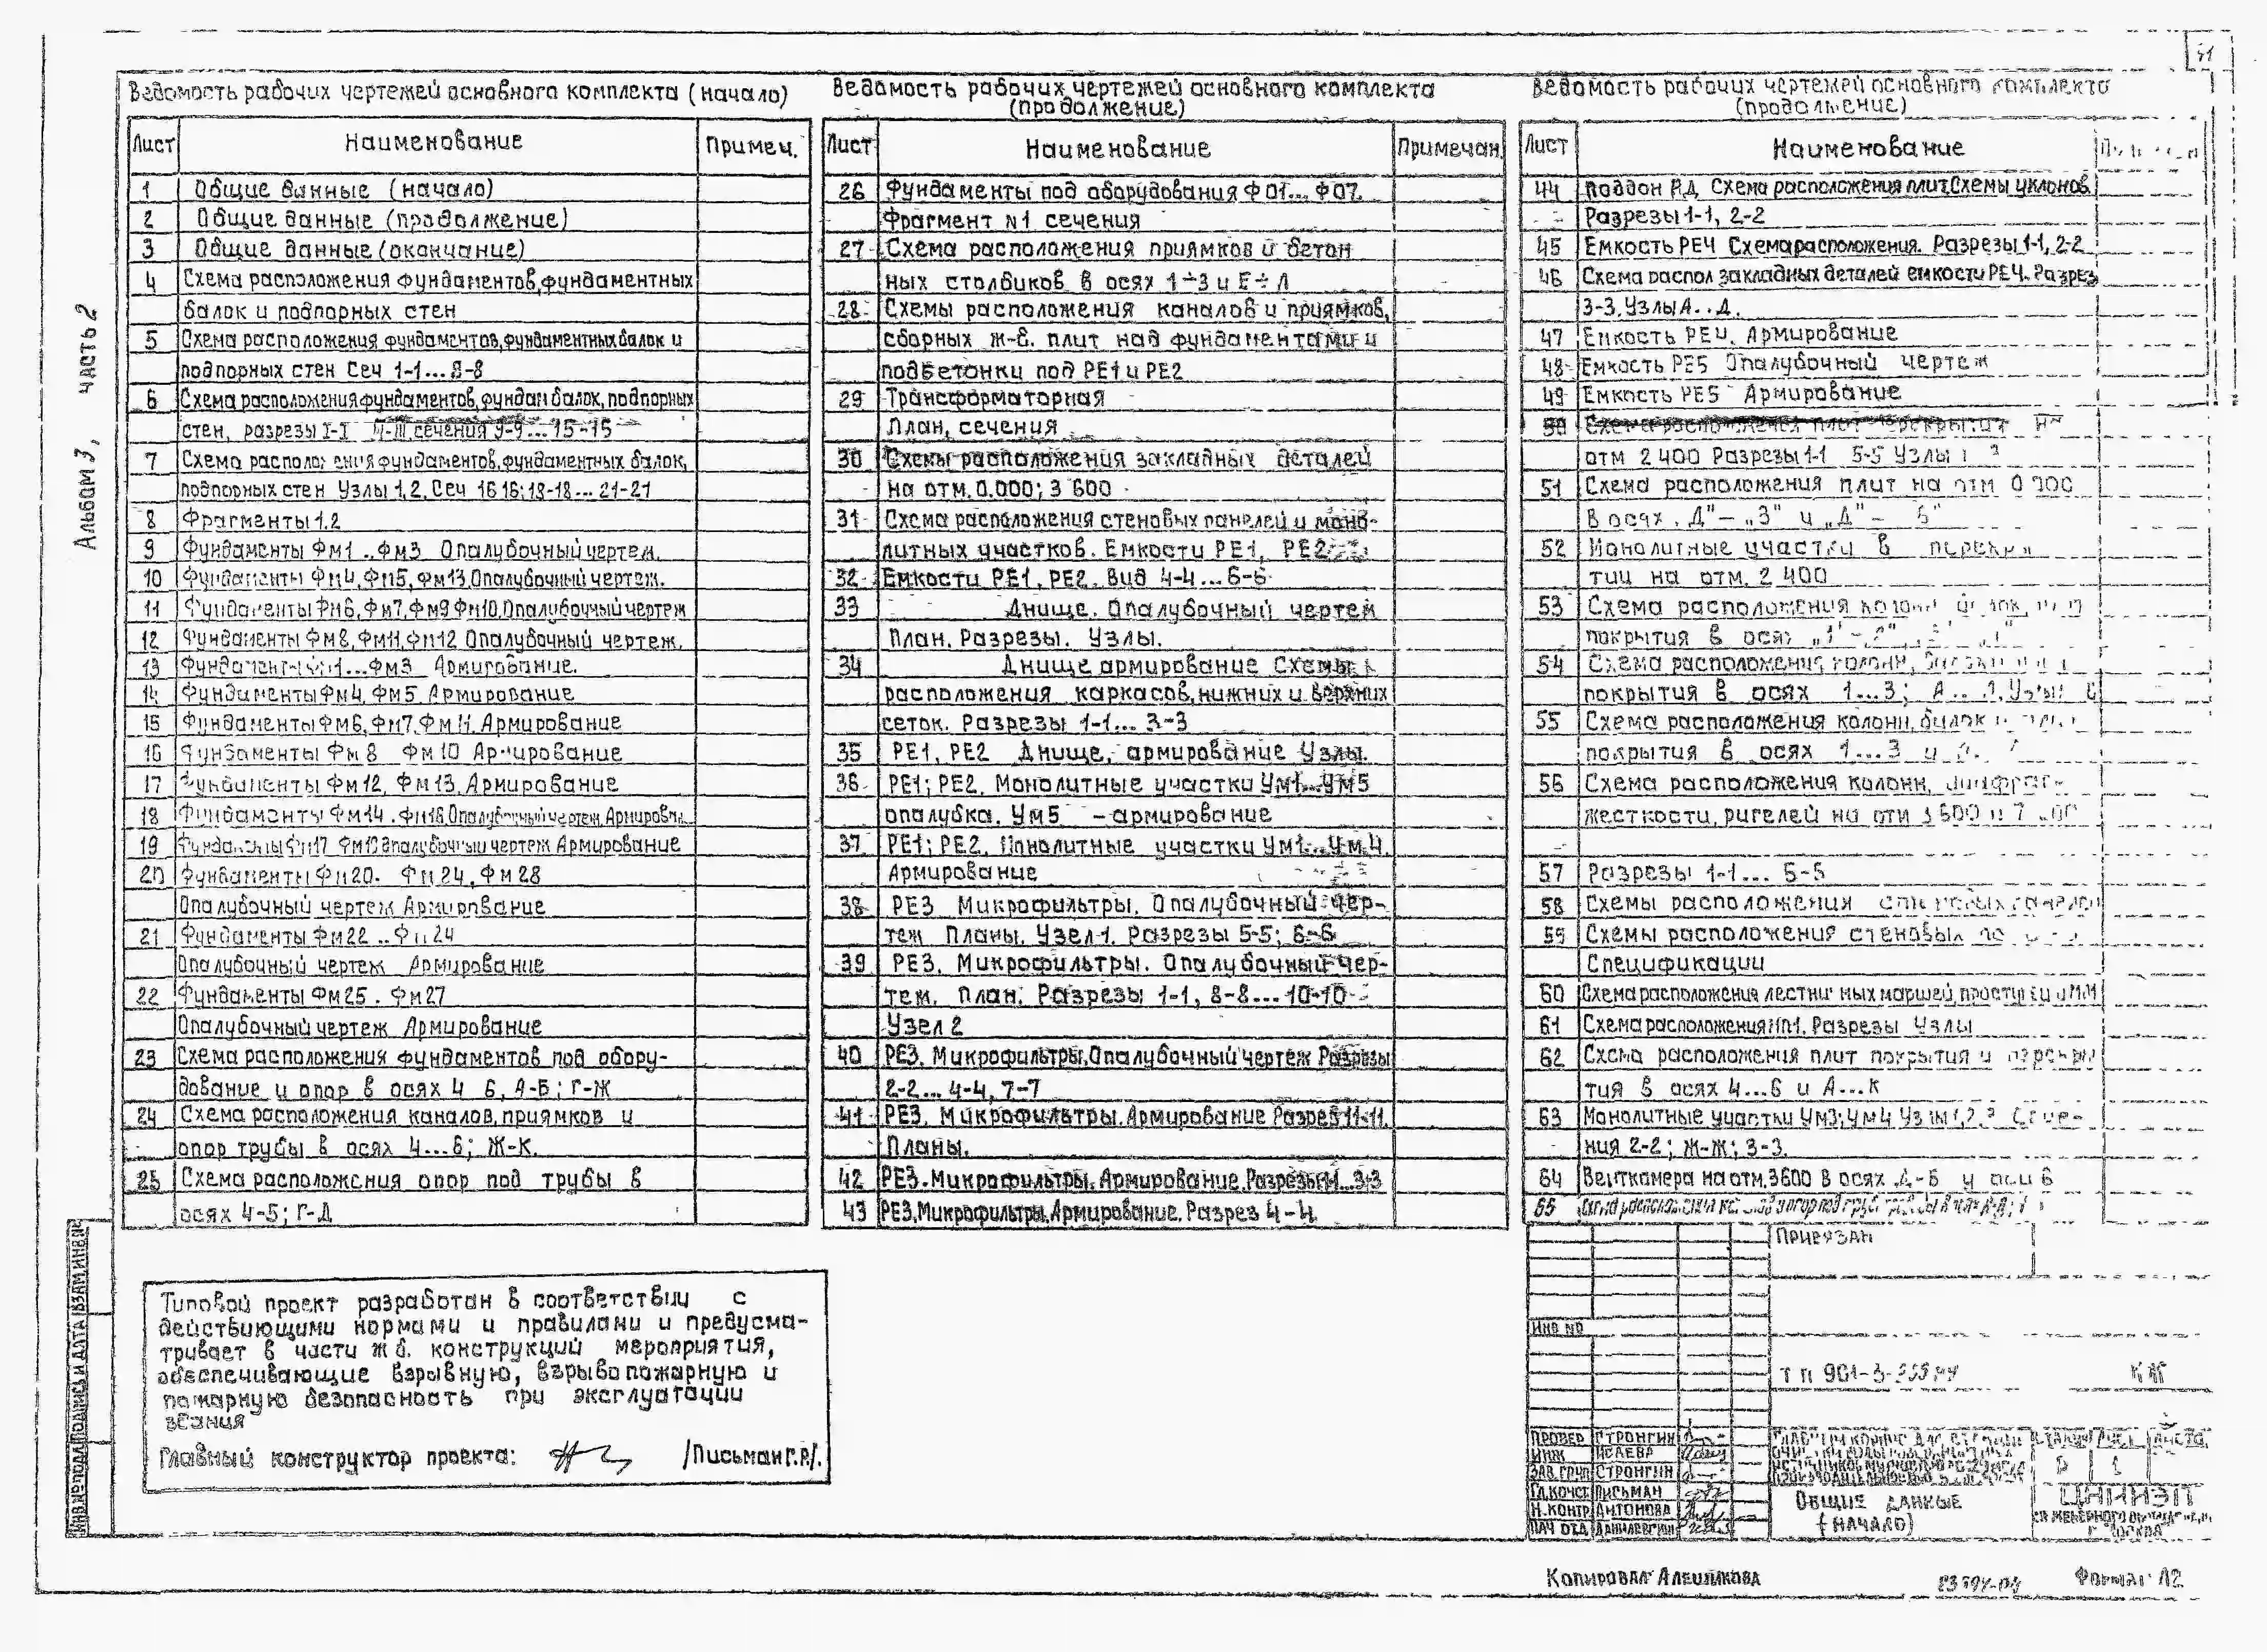 Альбом 3, часть 2
Ведомость рабочих чертежей основного комплекта (начало)
Лист Наименование Примеч.
1 Общие данные (начало)
2 Общие данные (продолжение)
3 Общие данные (окончание)
4 Схема расположения фундаментов, фундаментных
балок и подпорных стен
5 Схема расположения фундаментов, фундаментных балок и
подпорных стен Сеч 1-1...8-8
6 Схема расположения фундаментов, фундам балок, подпорных
стен, разрезы I-I сечения 9-9...15-15
7 Схема расположения фундаментов, фундаментных балок,
подпорных стен Узлы 1,2. Сеч 16 16; 18-18...21-21
8 Фрагменты 1.2
9 Фундаменты Фм1..Фм3 Опалубочный чертеж.
10 Фундаменты Фм4, Фм5, Фм13. Опалубочный чертеж.
11 Фундаменты Фм6, Фм7, Фм9 Фм10. Опалубочный чертеж
12 Фундаменты Фм8, Фм11, Фм12 Опалубочный чертеж.
13 Фундаменты Фм1...Фм3 Армирование.
14 Фундаменты Фм4, Фм5 Армирование
15 Фундаменты Фм6, Фм7, Фм11. Армирование
16 Фундаменты Фм8 Фм10 Армирование
17 Фундаменты Фм12, Фм13. Армирование
18 Фундаменты Фм14. Фм16. Опалубочный чертеж. Армиров.
19 Фундаменты Фм17 Опалубочный чертеж Армирование
20 Фундаменты Фм20. Фм24, Фм28
Опалубочный чертеж Армирование
21 Фундаменты Фм22..Фм24
Опалубочный чертеж Армирование
22 Фундаменты Фм25. Фм27
Опалубочный чертеж Армирование
23 Схема расположения фундаментов под обору-
дование и опор в осях 4 6, А-Б; Г-Ж
24 Схема расположения каналов, приямков и
опор трубы в осях 4...6; Ж-К.
25 Схема расположения опор под трубы в
осях 4-5; Г-Д
Ведомость рабочих чертежей основного комплекта
(продолжение)
Лист Наименование Примечан.
26 Фундаменты под оборудования Ф01... Ф07.
Фрагмент N1 сечения
27 Схема расположения приямков и бетон
ных столбиков в осях 1÷3 и Е÷Л
28 Схемы расположения каналов и приямков,
сборных ж-б. плит над фундаментами и
подбетонки под РЕ1 и РЕ2
29 Трансформаторная
План, сечения
30 Схемы расположения закладных деталей
на отм. 0.000; 3 600
31 Схема расположения стеновых панелей и моно-
литных участков. Емкости РЕ1, РЕ2
32 Емкости РЕ1, РЕ2. Вид 4-4...6-6
33 Днище. Опалубочный чертеж
План. Разрезы. Узлы.
34 Днище армирование Схемы
расположения каркасов, нижних и верхних
сеток. Разрезы 1-1... 3-3
35 РЕ1, РЕ2 Днище, армирование Узлы.
36 РЕ1; РЕ2. Монолитные участки Ум1...Ум5
опалубка. Ум5 - армирование
37 РЕ1; РЕ2. Монолитные участки Ум1...Ум4.
Армирование
38 РЕ3 Микрофильтры. Опалубочный чер-
теж Планы. Узел 1. Разрезы 5-5; 6-6
39 РЕ3. Микрофильтры. Опалубочный чер-
теж. План. Разрезы 1-1, 8-8...10-10
Узел 2
40 РЕ3. Микрофильтры. Опалубочный чертеж Разрезы
2-2... 4-4, 7-7
41 РЕ3. Микрофильтры. Армирование Разрез 11-11.
Планы.
42 РЕ3. Микрофильтры. Армирование. Разрезы 1-1...3-3
43 РЕ3. Микрофильтры. Армирование. Разрез 4-4.
Ведомость рабочих чертежей основного комплекта
(продолжение)
Лист Наименование
44 Поддон Схема расположения плит. Схемы уклонов.
Разрезы 1-1, 2-2
45 Емкость РЕ4 Схема расположения. Разрезы 1-1, 2-2
46 Схема распол закладных деталей емкости РЕ4. Разрез
3-3. Узлы А..Д.
47 Емкость РЕ4. Армирование
48 Емкость РЕ5 Опалубочный чертеж
49 Емкость РЕ5 Армирование
50 Схема расположения плит перекрытия
отм 2 400 Разрезы 1-1 5-5 Узлы
51 Схема расположения плит на отм 0 000
в осях „Д"-„З" и „Д"-
52 Монолитные участки в перекры
тии на отм. 2 400
53 Схема расположения колонн
покрытия в осях
54 Схема расположения колонн,
покрытия в осях 1...3;
55 Схема расположения колонн, балок
покрытия в осях 1...3 и
56 Схема расположения колонн, диафрагм
жесткости, ригелей на отм 3 600 и
57 Разрезы 1-1... 5-5
58 Схемы расположения стеновых панелей
59 Схемы расположения стеновых
Спецификации
60 Схема расположения лестничных маршей,
61 Схема расположения Разрезы Узлы
62 Схема расположения плит покрытия и перекры
тия в осях 4...6 и А...К
63 Монолитные участки Ум3; Ум4 Узлы 1,2,3 Сече-
ния 2-2; Ж-Ж; 3-3.
64 Венткамера на отм. 3600 в осях
65
Типовой проект разработан в соответствии с
действующими нормами и правилами и предусма-
тривает в части ж б. конструкций мероприятия,
обеспечивающие взрывную, взрывопожарную и
пожарную безопасность при эксплуатации
здания
Главный конструктор проекта: /Письман Г.Р./.
Привязан
Инв №
ТП 901-3-
КЖ
Провер Стронгин
Инж Исаева
Зав. груп Стронгин
Гл. конст Письман
Н. контр Антонова
Нач отд
Р 1
Общие данные
(начало)
ЦНИИЭП
Инв № подл Подпись и дата Взам. инв №
Копировал Алешикова
Формат А2